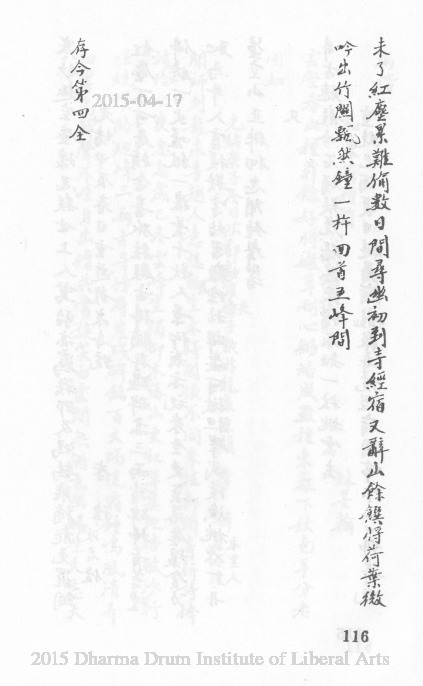 未了紅塵累難偷數日間尋幽初到寺經宿又辭山餘饌將荷葉微
吟出竹關飄然鐘一杵回首五峰間
存今第四全
2015-04-17
116
2015 Dharma Drum Institute of Liberal Arts